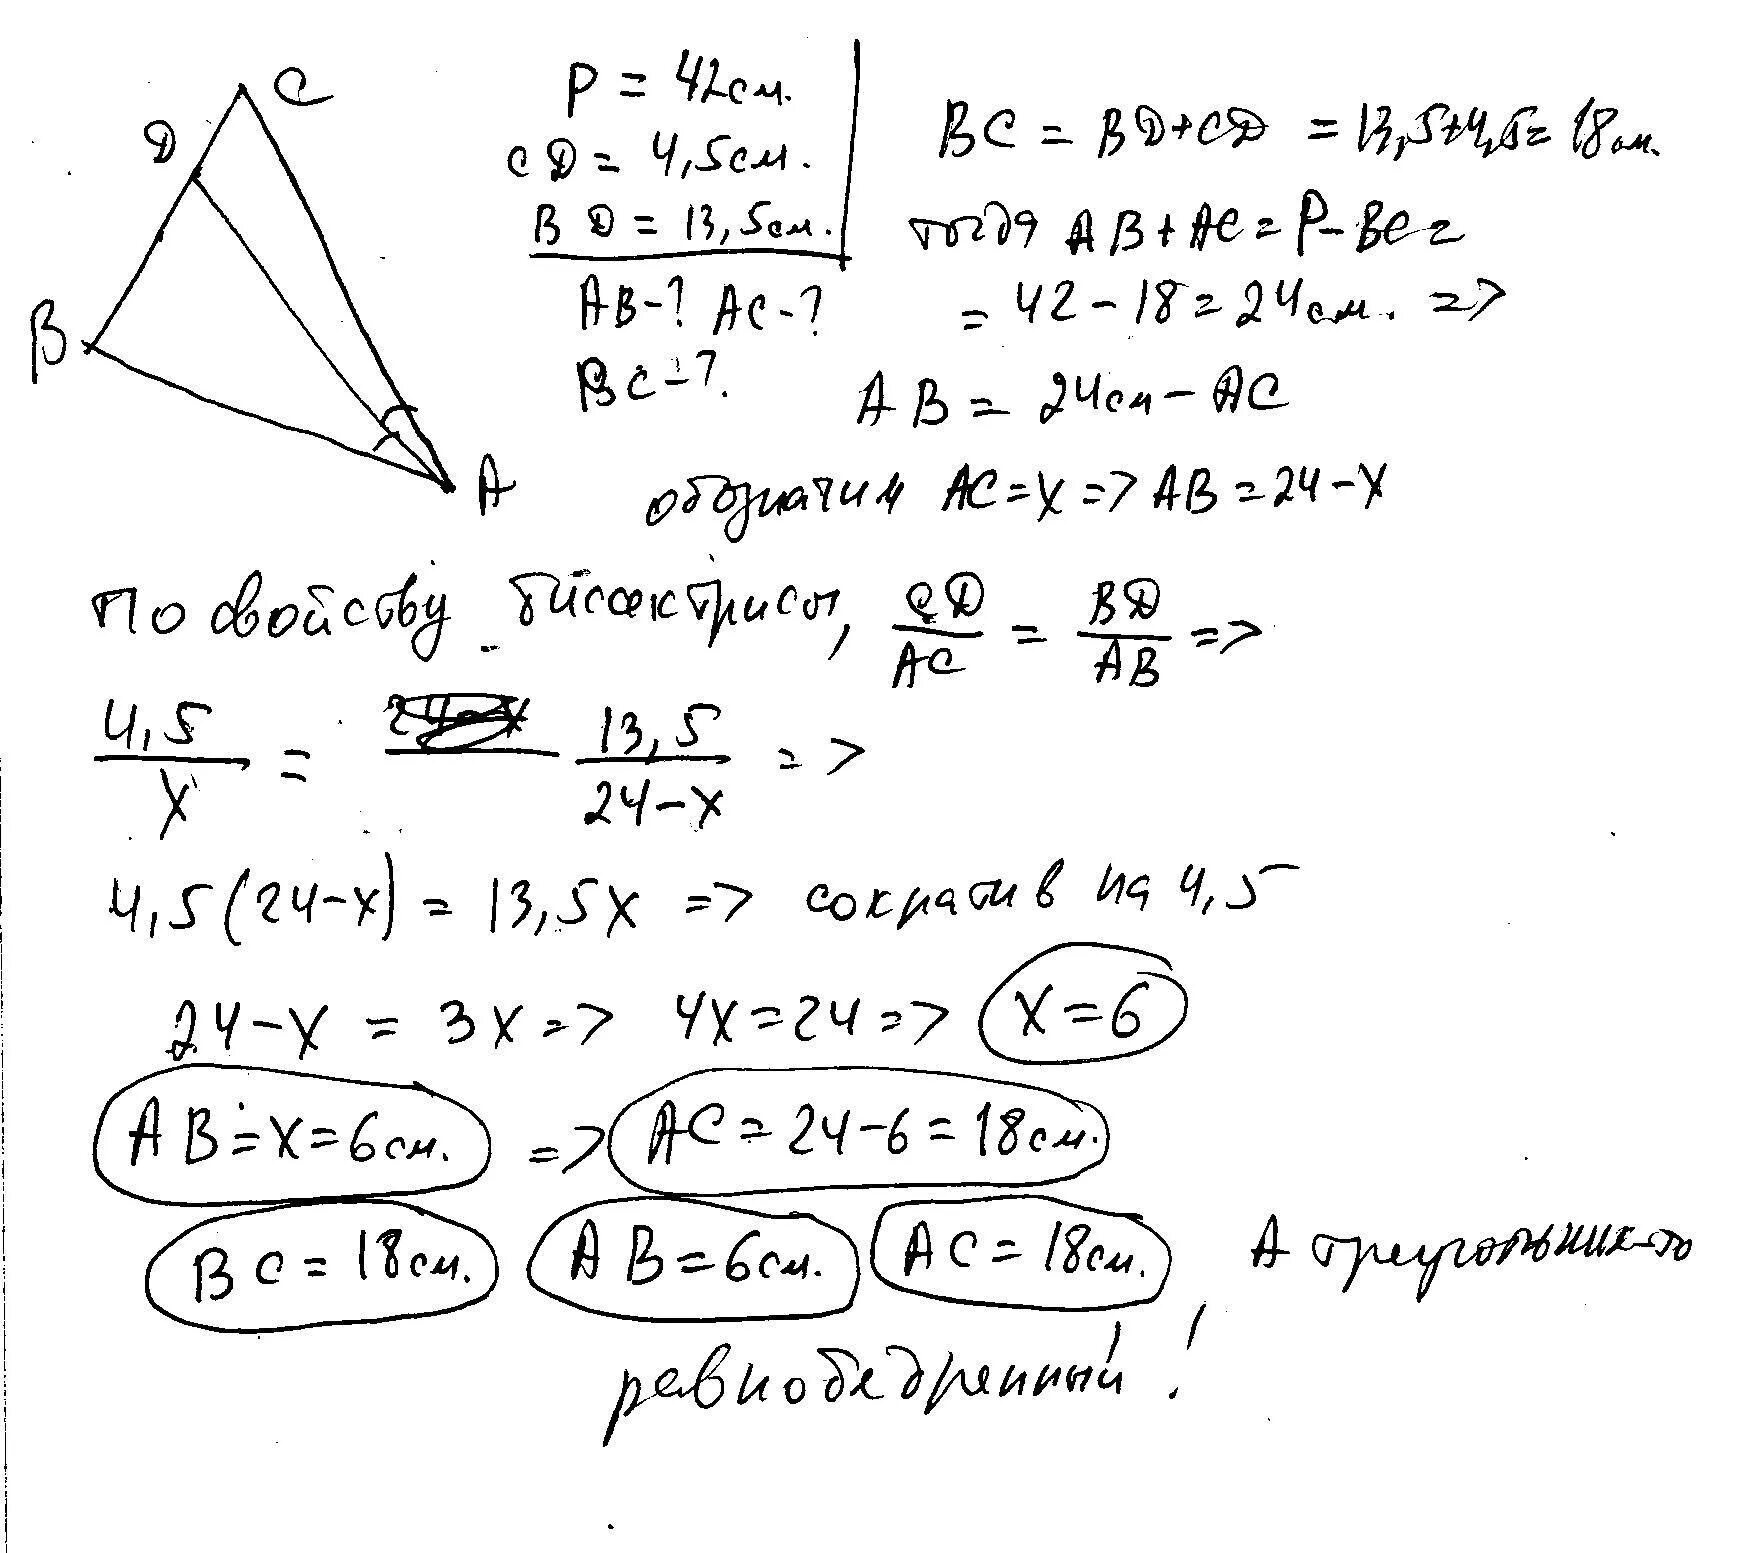 C
D
B
A
P = 42см.
CD = 4,5см.
BD = 13,5см.
AB-? AC-?
BC-?
BC = BD+CD = 13,5+4,5= 18см.
тогда AB+AC = P-BC =
= 42-18 = 24см. =>
AB = 24см - AC
обозначим AC=X => AB = 24-X
По свойству биссектрисы, CD/AC = BD/AB =>
4,5/X = 13,5/24-X =>
4,5(24-X) = 13,5X => сократив на 4,5
24-X = 3X => 4X=24 => X=6
AB=X=6см. => AC=24-6=18см.
BC=18см. AB=6см. AC=18см. А треугольник-то
равнобедренный!